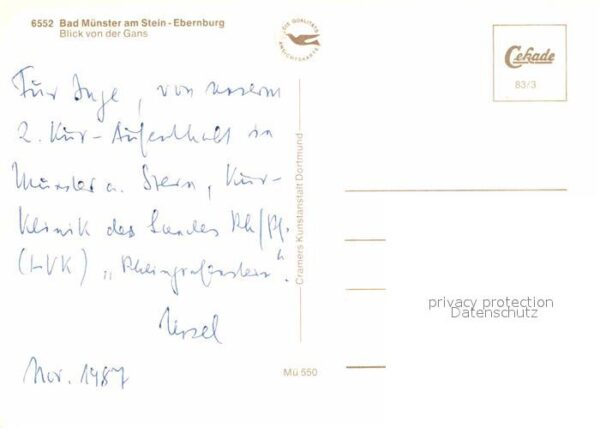 6552 Bad Münster am Stein - Ebernburg
Blick von der Gans
DIE QUALITÄTS
ANSICHTSKARTE
Cekade
83/3
Für Inge, von unserm
2. Kur-Aufenthalt in
Münster a. Stein, Kur-
Klinik des Landes Rh/Pf.
(LVK) „Rheingrafenstein".
Ursel
Nov. 1987
Cramers Kunstanstalt Dortmund
Mü 550
privacy protection
Datenschutz